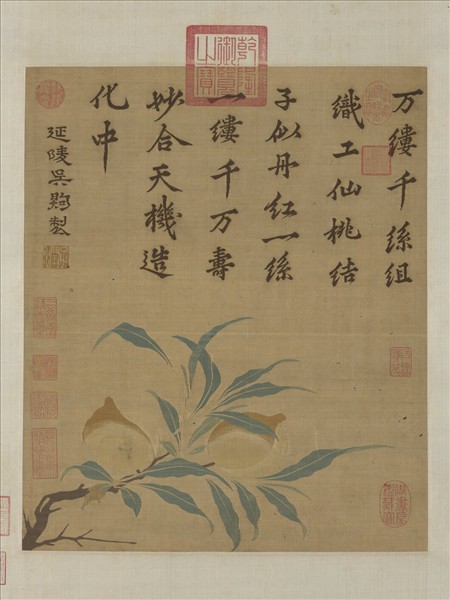 乾隆
御覽
之寶
万縷千絲組
織工仙桃結
子似丹紅一絲
一縷千万壽
妙合天機造
化中
延陵吳煦製